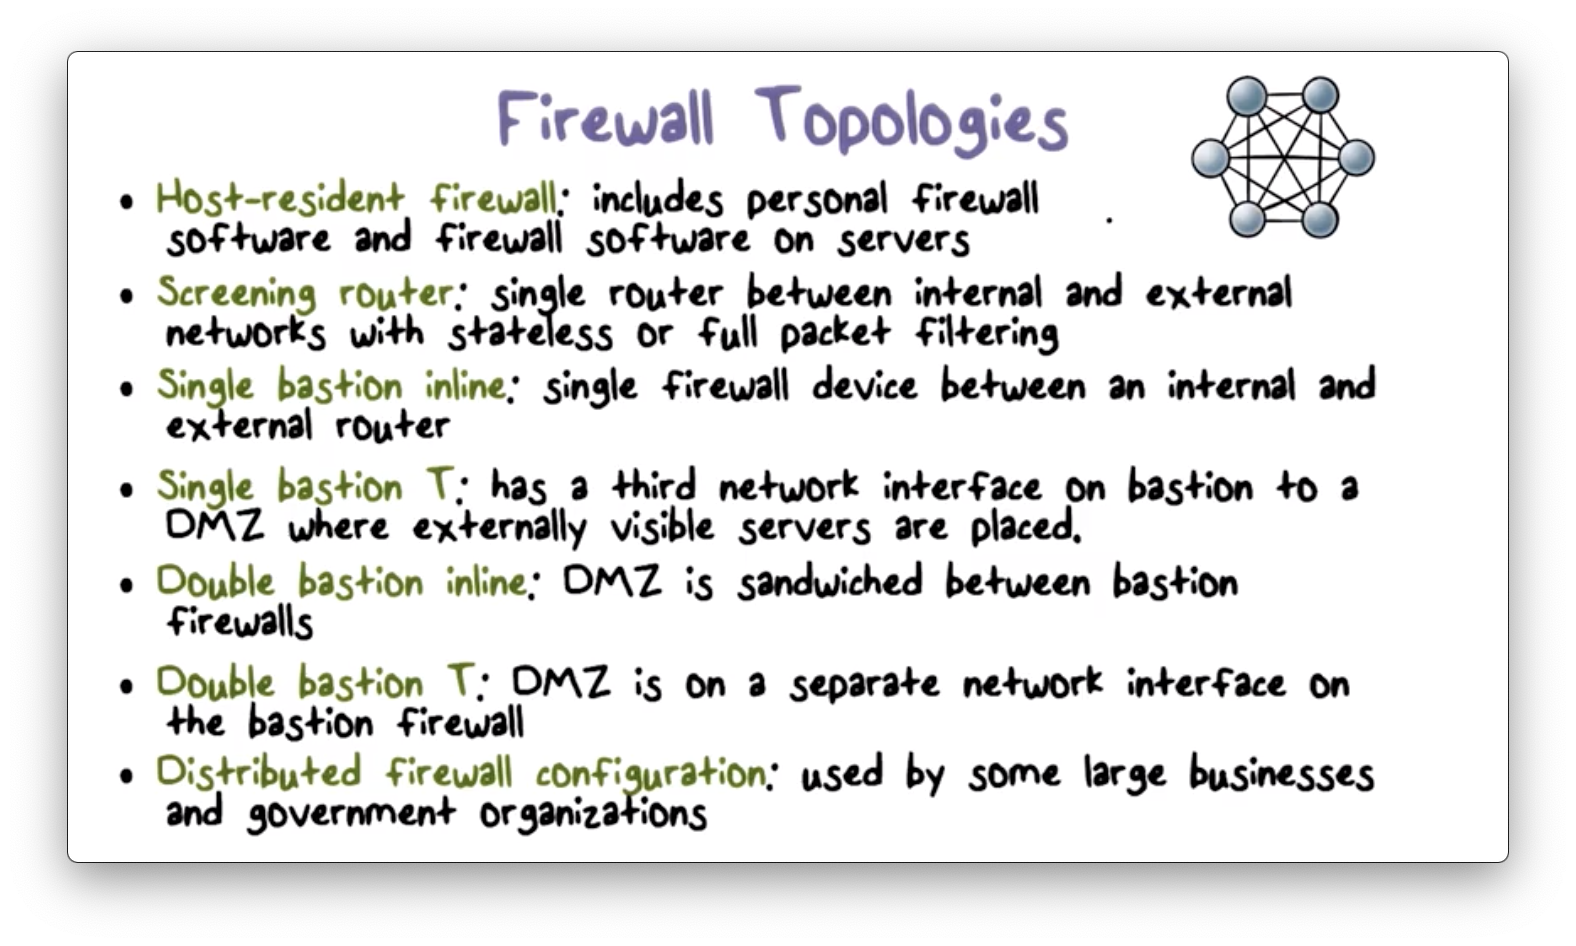 Firewall Topologies
• Host-resident firewall: includes personal firewall
software and firewall software on servers
• Screening router: single router between internal and external
networks with stateless or full packet filtering
• Single bastion inline: single firewall device between an internal and
external router
• Single bastion T: has a third network interface on bastion to a
DMZ where externally visible servers are placed.
• Double bastion inline: DMZ is sandwiched between bastion
firewalls
• Double bastion T: DMZ is on a separate network interface on
the bastion firewall
• Distributed firewall configuration: used by some large businesses
and government organizations